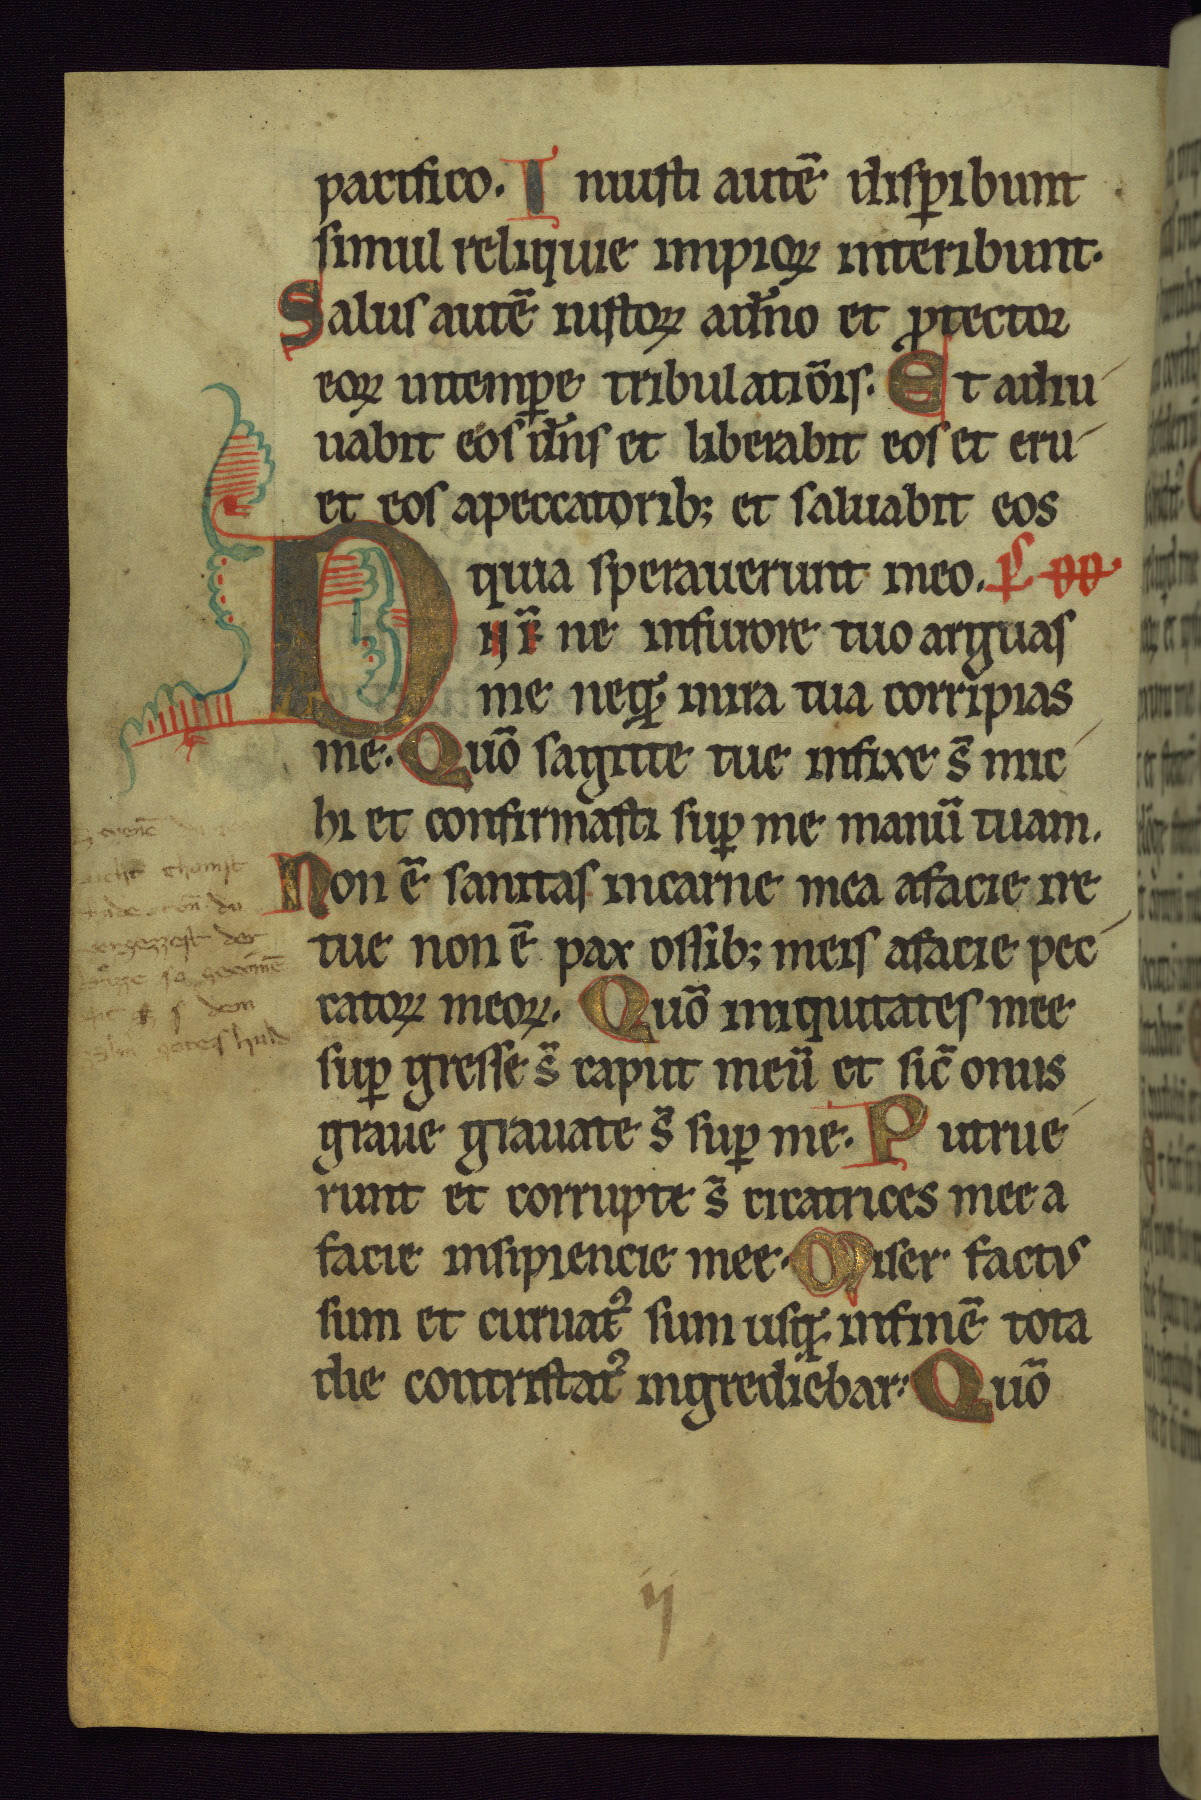 pacifico. Iniusti autē disꝑibunt
simul reliquie impioꝝ interibunt.
Salus autē iustoꝝ adn̄o et ꝓtector
eoꝝ intempꝑe tribulatiōis. Et adiu
uabit eos dn̄s et liberabit eos et eru
et eos apeccatorib; et saluabit eos
quia sperauerunt ineo. P̄s
Dn̄e ne infurore tuo arguas
me neqꝫ inira tua corripias
me. Quō sagitte tue infixe s̄ mic
hi et confirmasti suꝑ me manū tuam.
Non ē sanitas incarne mea afacie ire
tue non ē pax ossib; meis afacie pec
catoꝝ meoꝝ. Quō iniquitates mee
suꝑ gresse s̄ caput meū et sic̄ onus
graue grauate s̄ suꝑ me. Putrue
runt et corrupte s̄ cicatrices mee a
facie insipiencie mee. Miser factus
sum et curuatꝰ sum usqꝫ infinē tota
die contristatꝰ ingrediebar. Quō